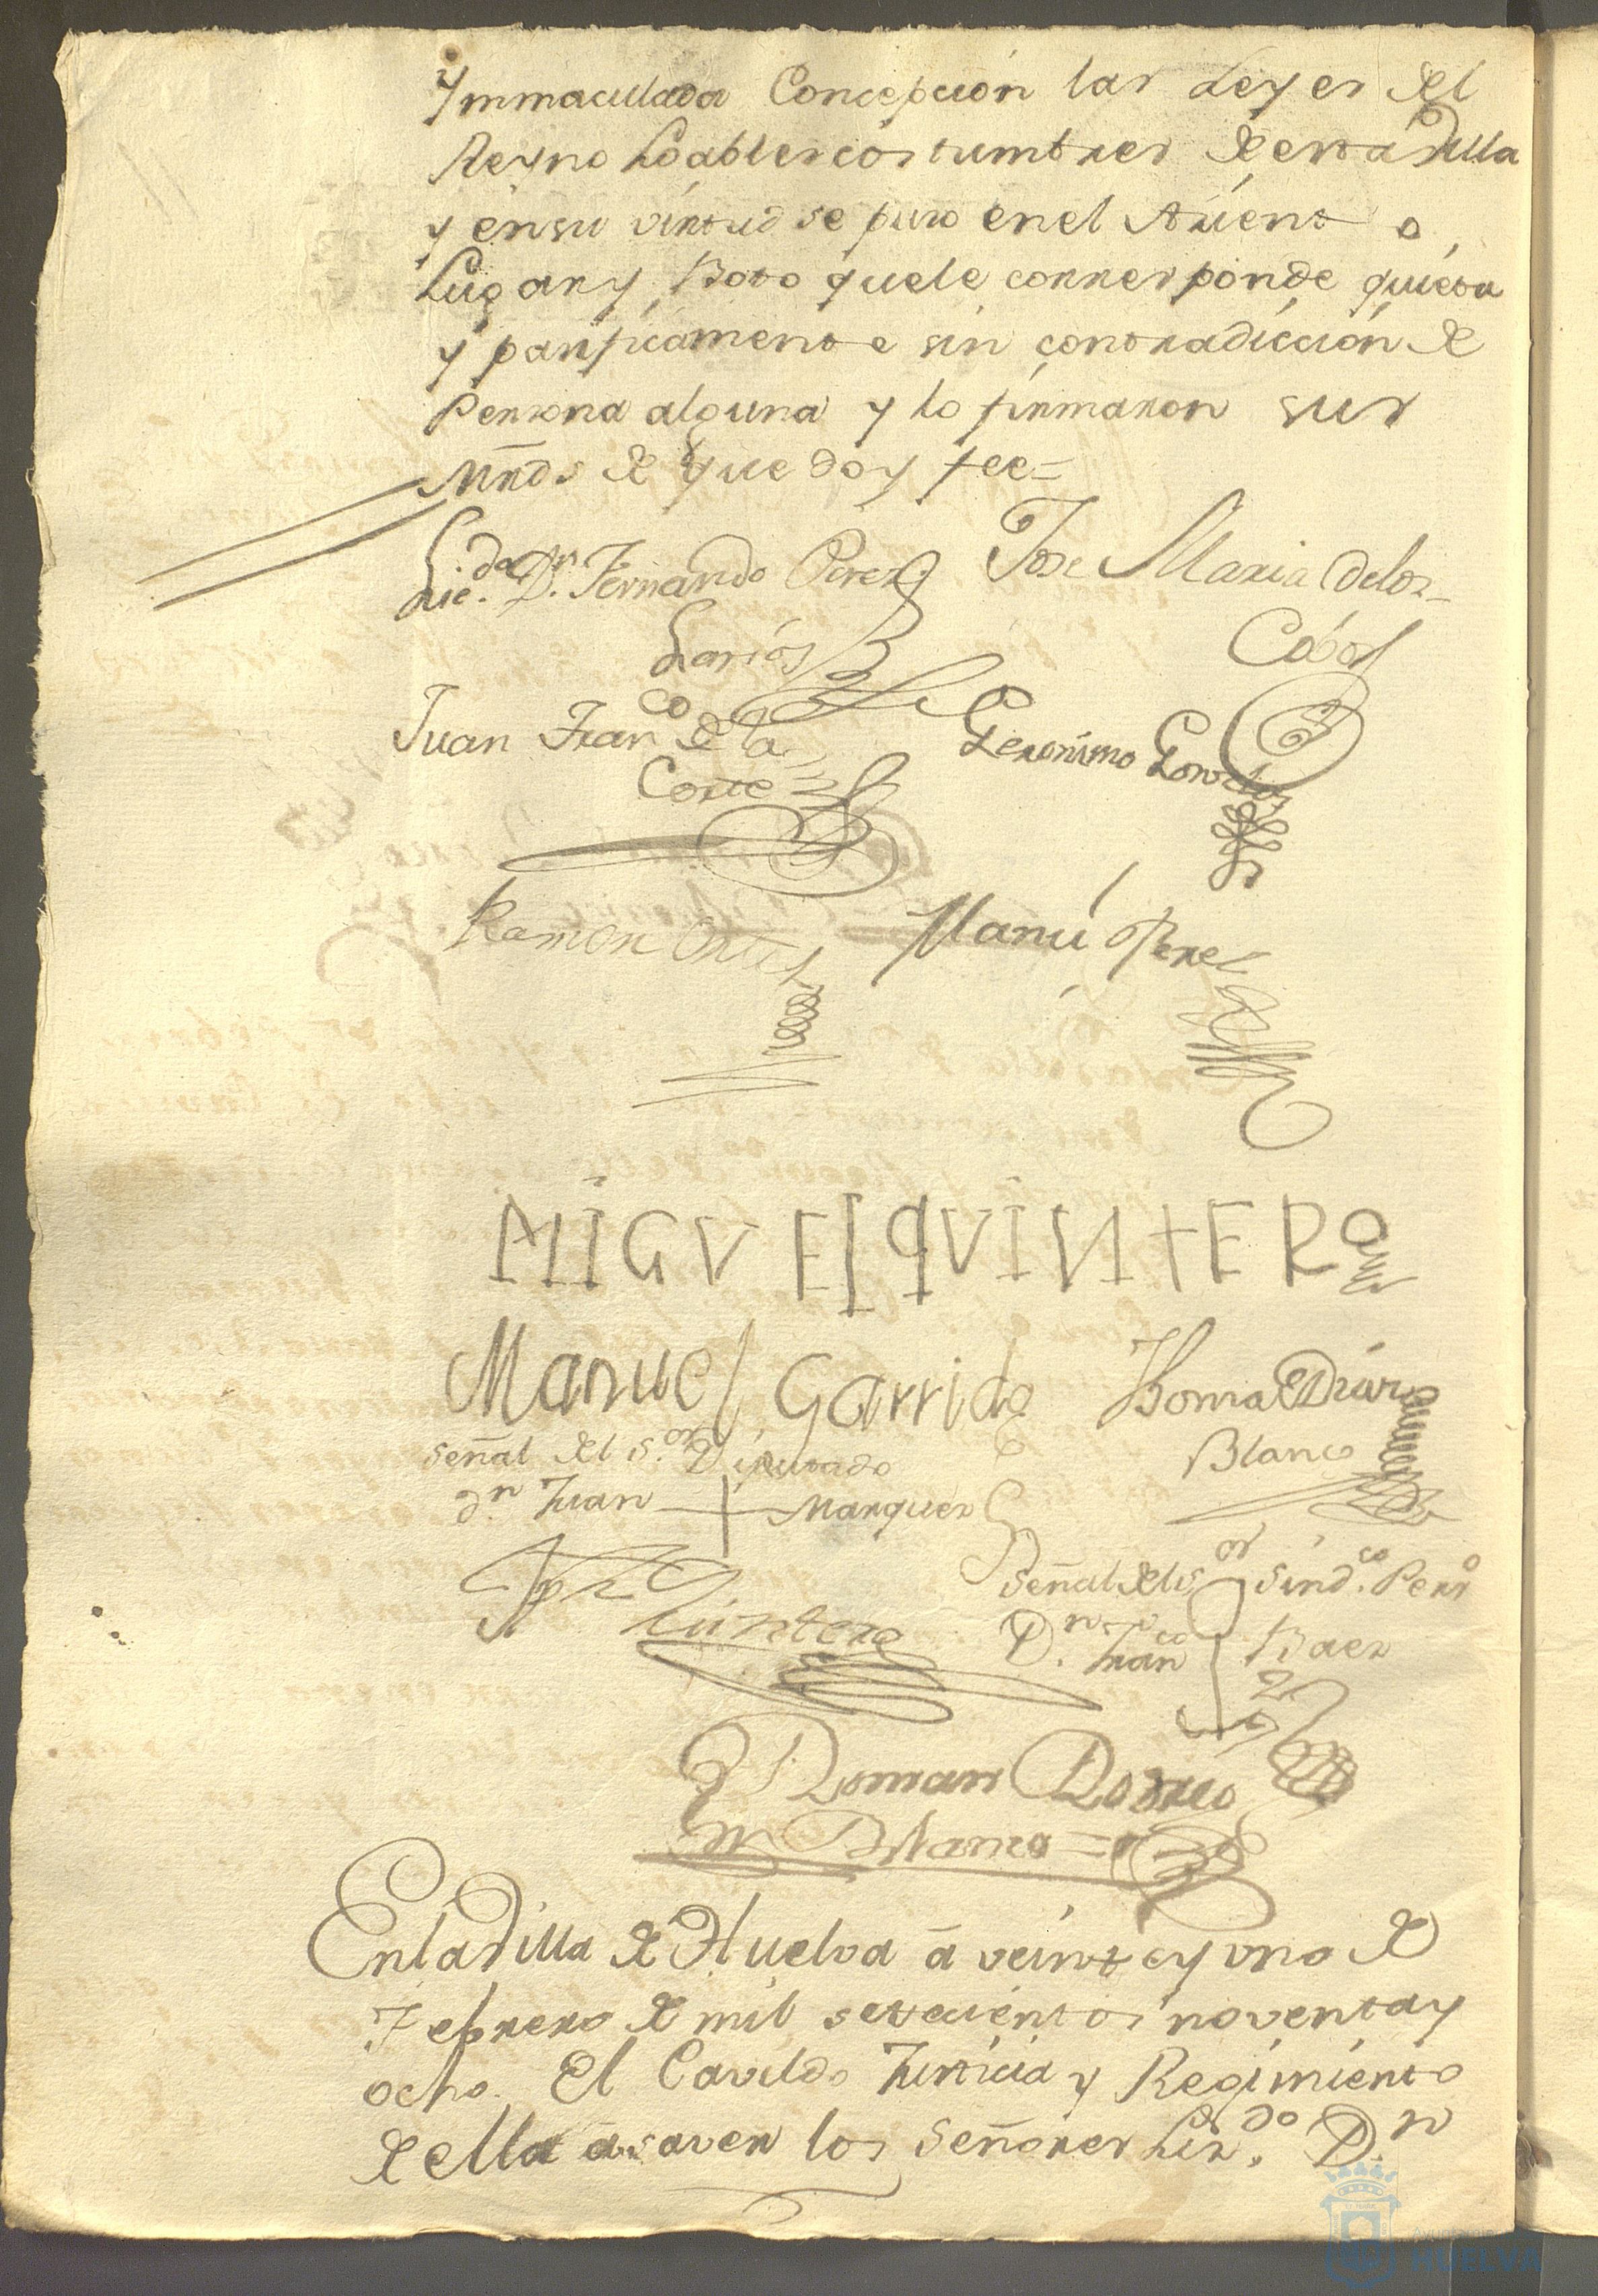 Ynmaculada Concepcion las Leyes del
Reyno Loables costumbres de esta Villa
y en su virtud se puso en el Asiento
Lugar y Boto que le corresponde quieta
y pasificamente sin contradiccion de
Persona alguna y lo firmaron sus
Mrds de que doy fee=
Licdo. Dn. Fernando Perez
Larios
Jose Maria de los
Cobos
Juan Franco de la
Corte
Geronimo Gonzalez
Ramon Ortiz
Manl Perez
MIGVEl QVINTERO
Manuel Garrido
Thomas Diaz
Blanco
Señal del Sor. Diputado
dn Juan + Marquez
Quintero
Señal del Sor Sindco. Perso
Dn. Franco Baez
Roman
Blanco
En la Villa de Huelva à veinte y uno de
Febrero de mil setecientos noventa y
ocho. El Cavildo Justicia y Regimiento
de ella asaver los Señores Lizdo. Dn
Ayuntamiento
HUELVA